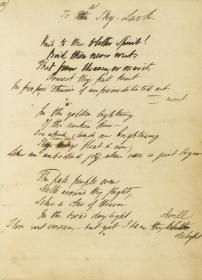 To a Sky-Lark
Hail to thee blithe Spirit!
Bird thou never wert
That from Heaven, or near it
Pourest thy full heart
In profuse strains of unpremeditated art
In the golden lightning
Of the sunken
clouds are brightning
float & run;
Like an unbodied joy whose race is just begun
The pale purple even
Melts around thy flight,
Like a star of Heaven
In the broad daylight
Thou art unseen, but yet I hear thy shrill delight